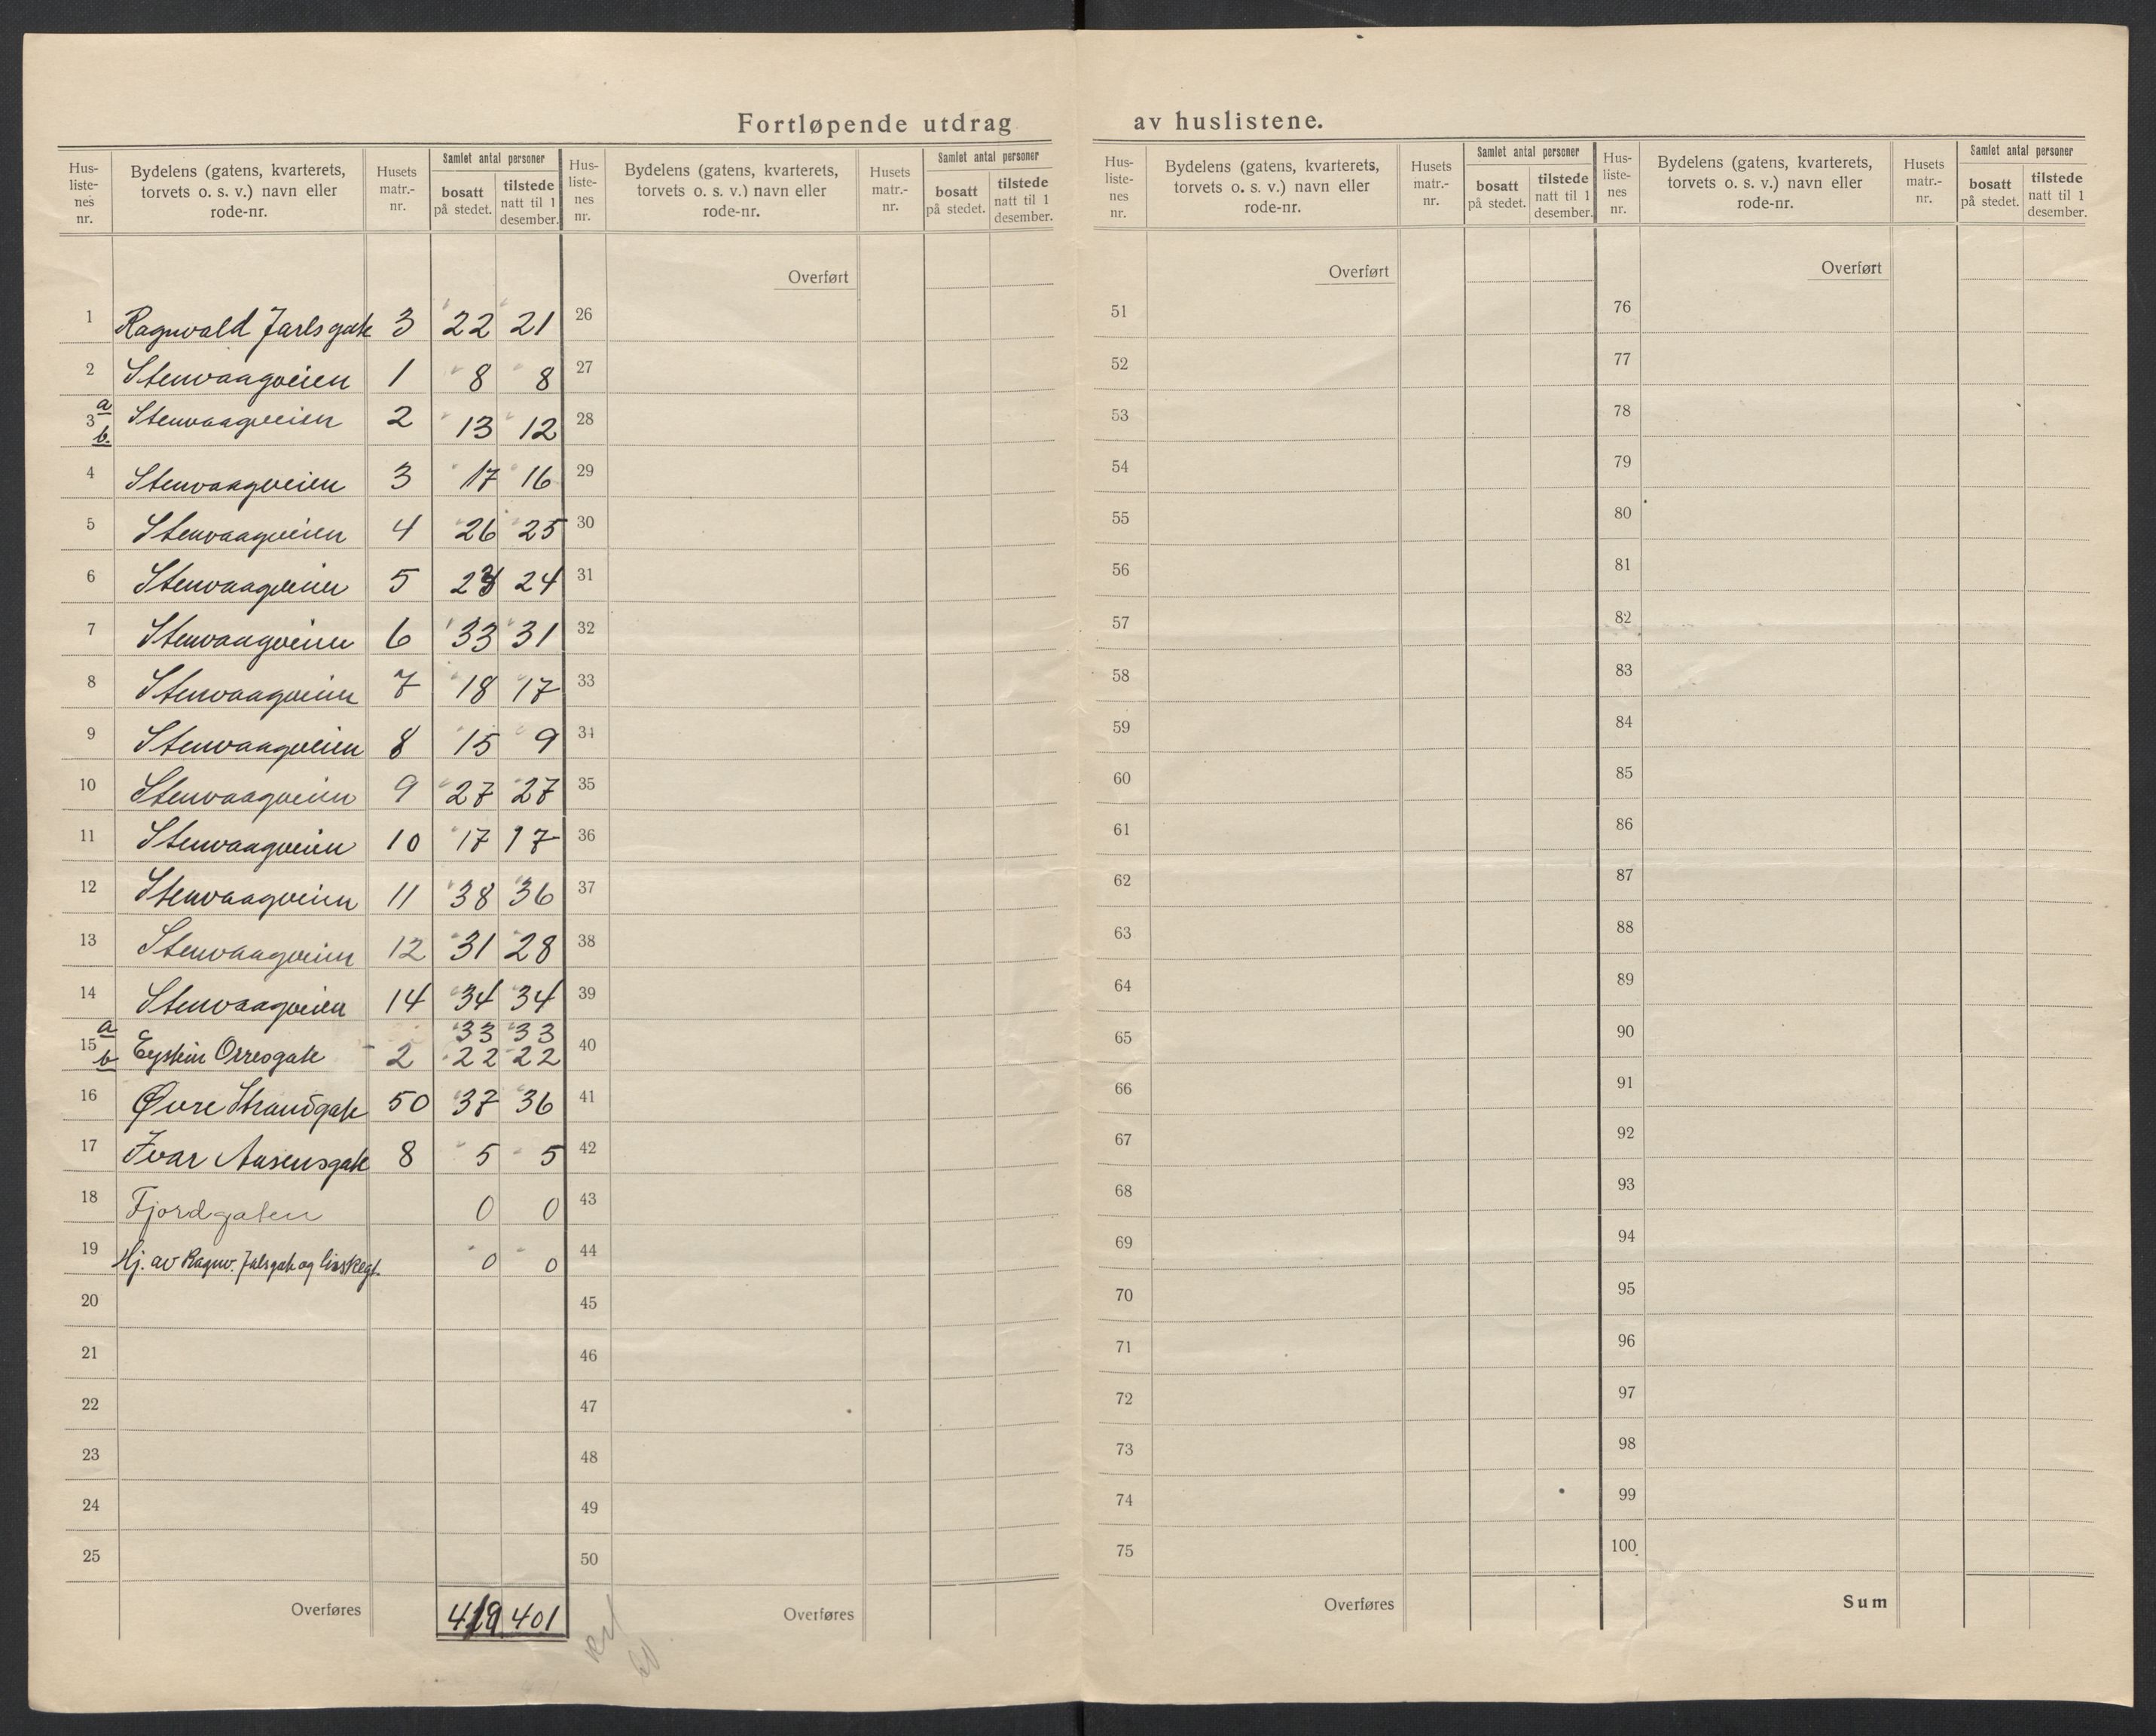 Fortløpende utdrag av huslistene.
Hus-liste-nes nr. Bydelens (gatens, kvarterets, torvets o. s. v.) navn eller rode-nr. Husets matr.-nr. Samlet antal personer bosatt på stedet. tilstede natt til 1 desember.
1 Ragnvald Jarls gate 3 22 21
2 Stenvaagveien 1 8 8
3 a b. Stenvaagveien 2 13 12
4 Stenvaagveien 3 17 16
5 Stenvaagveien 4 26 25
6 Stenvaagveien 5 23 24
7 Stenvaagveien 6 33 31
8 Stenvaagveien 7 18 17
9 Stenvaagveien 8 15 9
10 Stenvaagveien 9 27 27
11 Stenvaagveien 10 17 17
12 Stenvaagveien 11 38 36
13 Stenvaagveien 12 31 28
14 Stenvaagveien 14 34 34
a 33 33
15 b Eystein Orresgate - 2 22 22
16 Øvre Strandgate 50 37 36
17 Ivar Aasensgate 8 5 5
18 Fjordgaten 0 0
19 Hj. av Ragnv. Jalsgate og 0 0
20
21
22
23
24
25
Overføres 419 401
Hus-liste-nes nr. Bydelens (gatens, kvarterets, torvets o. s. v.) navn eller rode-nr. Husets matr.-nr. Samlet antal personer bosatt på stedet. tilstede natt til 1 desember.
Overført
26
27
28
29
30
31
32
33
34
35
36
37
38
39
40
41
42
43
44
45
46
47
48
49
50
Overføres
Hus-liste-nes nr. Bydelens (gatens, kvarterets, torvets o. s. v.) navn eller rode-nr. Husets matr.-nr. Samlet antal personer bosatt på stedet. tilstede natt til 1 desember.
Overført
51
52
53
54
55
56
57
58
59
60
61
62
63
64
65
66
67
68
69
70
71
72
73
74
75
Overføres
Hus-liste-nes nr. Bydelens (gatens, kvarterets, torvets o. s. v.) navn eller rode-nr. Husets matr.-nr. Samlet antal personer bosatt på stedet. tilstede natt til 1 desember.
Overført
76
77
78
79
80
81
82
83
84
85
86
87
88
89
90
91
92
93
94
95
96
97
98
99
100
Sum